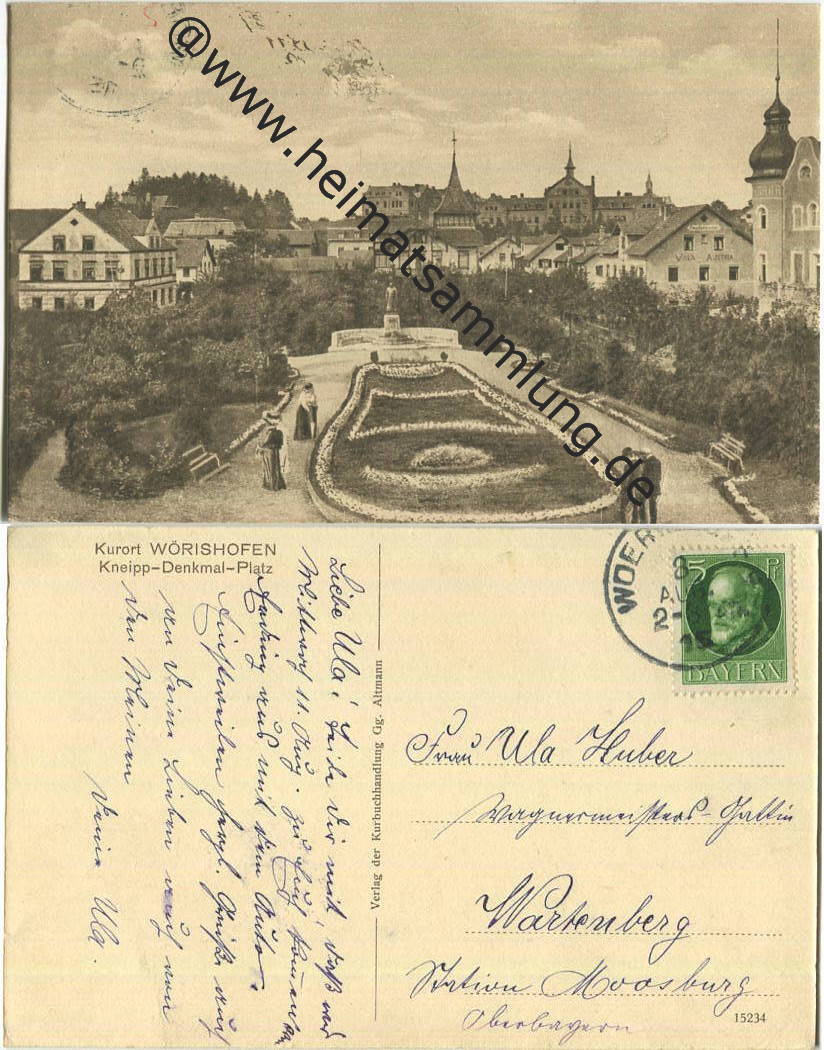 @www.heimatsammlung.de
VILLA AUSTRIA
Kurort WÖRISHOFEN
Kneipp-Denkmal-Platz
Liebe Ula! Teile Dir mit, daß wir
Mittwoch 11. Aug.
aus mit dem Auto.
Einstweilen herzl. Grüße auch
an deine Lieben auch von
den Meinen
Deine Ula.
Verlag der Kurbuchhandlung Gg. Altmann
WOER
8
AUG
2-
15
5 Pf
BAYERN
Frau Ula Huber
Wagnermeisters-Gattin
Wartenberg
Station Moosburg
Oberbayern
15234